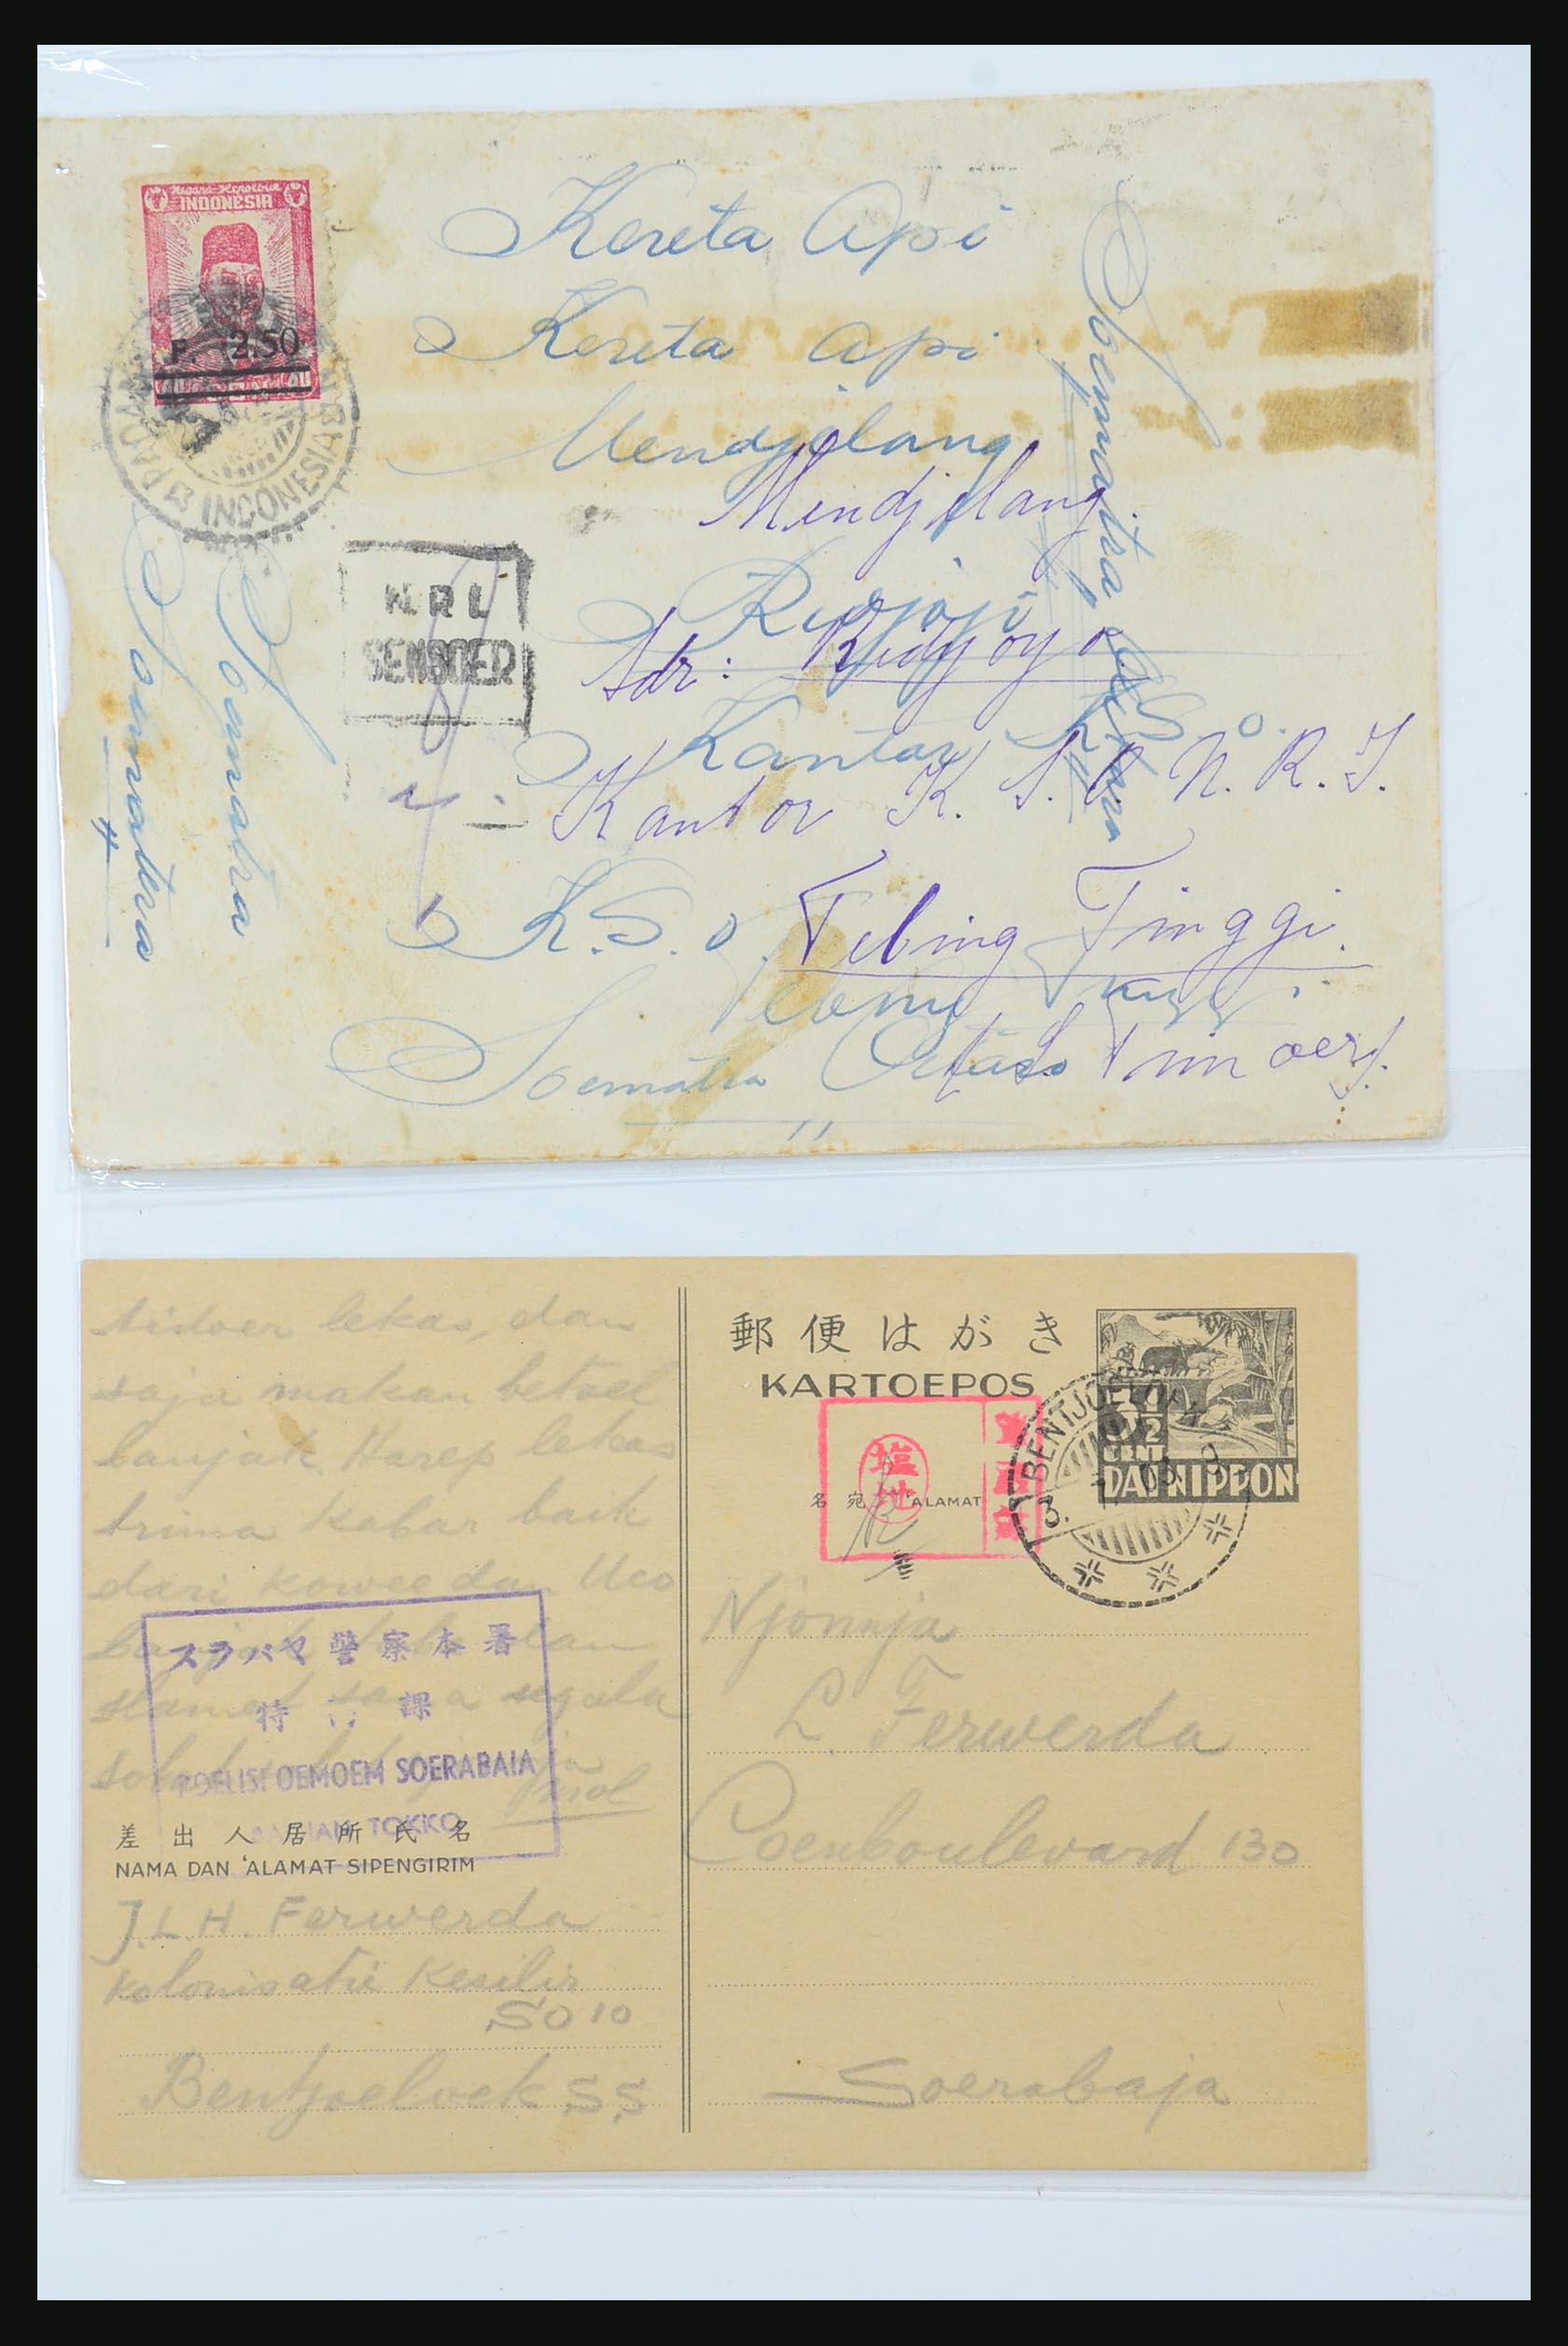 Negara-Republik
INDONESIA
2.50
PADANG
INDONESIA
Kereta Api
Kereta Api
Mendjelang
Mendjelang
Soematra Oetara
Soematra
Soematra
N R I
SENSOER
Adr: Ridjoyo
Kantor
Kantor K. S. O N. R. I.
K. S. O. Tebing Tinggi.
Tebing Tinggi
Soematra Oetara
( S. Timoer).
tidoer lekas, dan
saja makan betoel
banjak. Harep lekas
trima kabar baik
dari kowee dan Uco
dan
slamet sama segala
スラバヤ警察本署
特 課
POELISI OEMOEM SOERABAIA
TOKKO
差出人居所氏名
NAMA DAN 'ALAMAT SIPENGIRIM
J.L.H. Ferwerda
Kolonisatie Kesilir
SO 10
Bentjoeloek S.S
郵便はがき
KARTOEPOS
3 1/2
CENT
DAI NIPPON
BENTJOELOEK
3.
名宛 'ALAMAT
Njonja
L. Ferwerda
Coenboulevard 130
Soerabaja